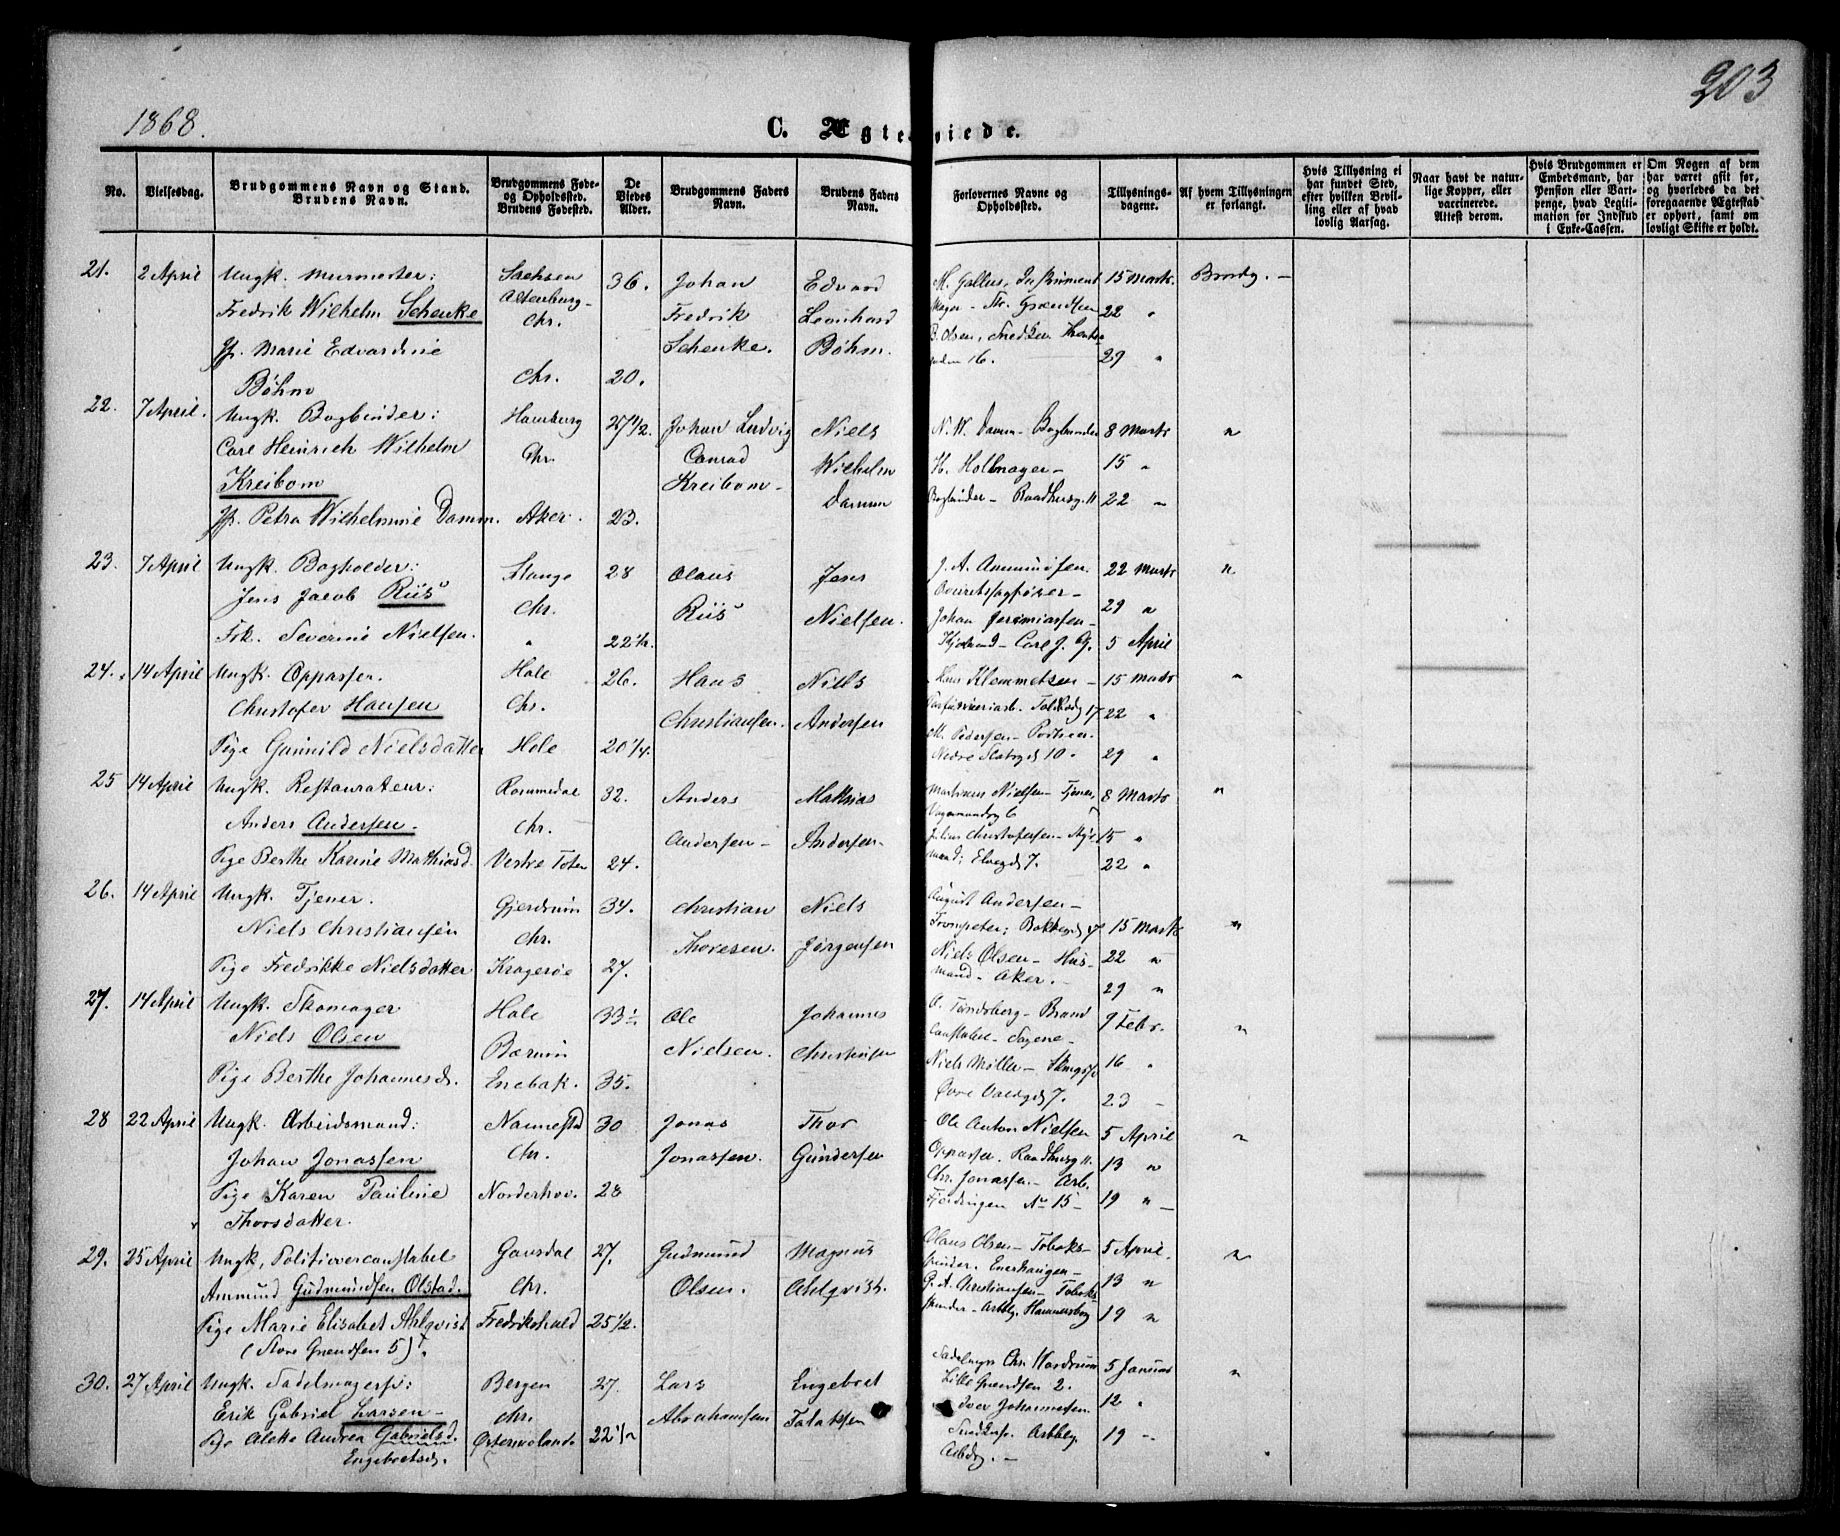 1868.
203
C. Ægteviede.
No.
Vielsesdag.
Brudgommens Navn og Stand.
Brudens Navn.
Brudgommens Føde-
og Opholdssted.
Brudens Fødested.
De
Viedes
Alder.
Brudgommens Faders
Navn.
Brudens Faders
Navn.
Forlovernes Navne og
Opholdssted.
Tillysnings-
dagene.
Af hvem Tillysningen
er forlangt.
Hvis Tillysning ei
har fundet Sted,
efter hvilken Bevil-
ling eller af hvad
lovlig Aarsag.
Naar havt de natur-
lige Kopper, eller
vaccinerede.
Attest derom.
Hvis Brudgommen er
Embedsmand, har
Pension eller Vart-
penge, hvad Legiti-
mation for Indskud
i Enke-Cassen.
Om Nogen af dem
har været gift før,
og hvorledes da det
foregaaende Ægteskab
er ophørt, samt om
lovligt Skifte er holdt.
21. 2 April Ungk. Murmester: Sachsen 36. Johan Edvard M. Gallus, Instrument 15 Marts Brudg. —
Altenburg-
Fredrik Wilhelm Schenke Chr. Fredrik Leonhard mager - St. Grændsen 22 "
Jfr. Marie Edvardine Schenke. Bøhm. B. Olsen, Snedker 29 "
16.
Bøhm Chr. 20.
22. 7 April. Ungk. Bogbinder: Hamburg 27 1/2. Johan Ludvig Niels N. W. Damm - Bogbinder 8 Marts "
Carl Heinrich Wilhelm Chr. Conrad Wilhelm H. Hollnager - 15 "
Kreibom Kreibom - Damm Bogbinder - Raadhusg. 11 22 "
Jfr. Petra Wilhelmine Damm. Aker. 23.
23. 7 April Ungk. Bogholder: Stange 28 Olaus Jens J. A. 22 Marts "
Jens Jacob Riis Chr. Riis Nielsen. Overretssagfører - 29 "
Frk. Severine Nielsen. " 22 1/2. Johan Jeremiassen -
Carl J. G. 5 April
24. 14 April Ungk. Oppasser. Hole 26. Hans Niels Hans Klemmetsen - 15 Marts "
Christofer Hansen Chr. Christiansen. Andersen Toldbodg 17 22 "
M. Pedersen - Portneer.
Pige Gunnild Nielsdatter Hole 20 1/4. Nedre Slotsgd 10. 29 "
25 14 April Ungk. Restaurateur: Rommedal 32. Anders Mathias Martinus Nielsen - Tjener, 8 Marts "
Vognmandsg 6
Anders Andersen. Chr. Andersen - Andersen - Julius Christofersen - 15 "
Pige Berthe Karine Mathiasd. Vestre Toten 24. mand; Elvegd 7. 22 "
26. 14 April Ungk. Tjener. Gjerdrum 34. Christian Niels August Andersen -
Niels Christiansen Chr. Thoresen. Jørgensen Trompeter; Bakkegd 7 15 Marts "
Pige Fredrikke Nielsdatter Kragerøe 27. Niels Olsen - Hus- 22 "
mand - Aker. - 29 "
27. 14 April Ungk. Skomager Hole 33 1/2 Ole Johannes O. Tønsberg - Brand 9 Febr. "
Niels Olsen Bærum Nielsen. Christiansen constabel - Sagene -
Pige Berthe Johannesd. Enebak. 35. Niels Møller - 16 "
Øvre Voldgd 7. 23 -
28 22 April Ungk. Arbeidsmand: Nannestad 30 Jonas Thor Ole Anton Nielsen 5 April "
Johan Jonassen Chr. Jonassen. Gundersen Oppasser. Raadhusg 11. 13 "
Pige Karen Pauline Norderhov. 28 Chr. Jonassen - Arb.
Thorsdatter. Fjerdingen No 15 - 19 "
29. 25 April Ungk. Politioverconstabel Gausdal 27. Gudmund Magnus Olaus Olsen - Tobaks- 5 April. "
Ammund Gudmundsen Olstad. Chr. Olsen. Ahlqvist. spinder. Enerhaugen - 13 "
Pige Marie Elisabet Ahlqvist Fredrikshald 25 1/2. G. A. Christiansen - Tobaks-
(Store Grændsen 5). spinder - Arbbg. Hammersborg 19 "
30. 27 April Ungk. Sadelmagersv: Bergen 27. Lars Engebret Sadelmgr Chr. 5 Januar "
Erik Gabriel Larsen - Chr. Abrahamsen Falaksen Lille Grændsen 2. 12 "
Pige Alette Andrea Gabrielsd. 22 1/2 Iver Johannesen
Engebretsd. Arbbg. 19 "